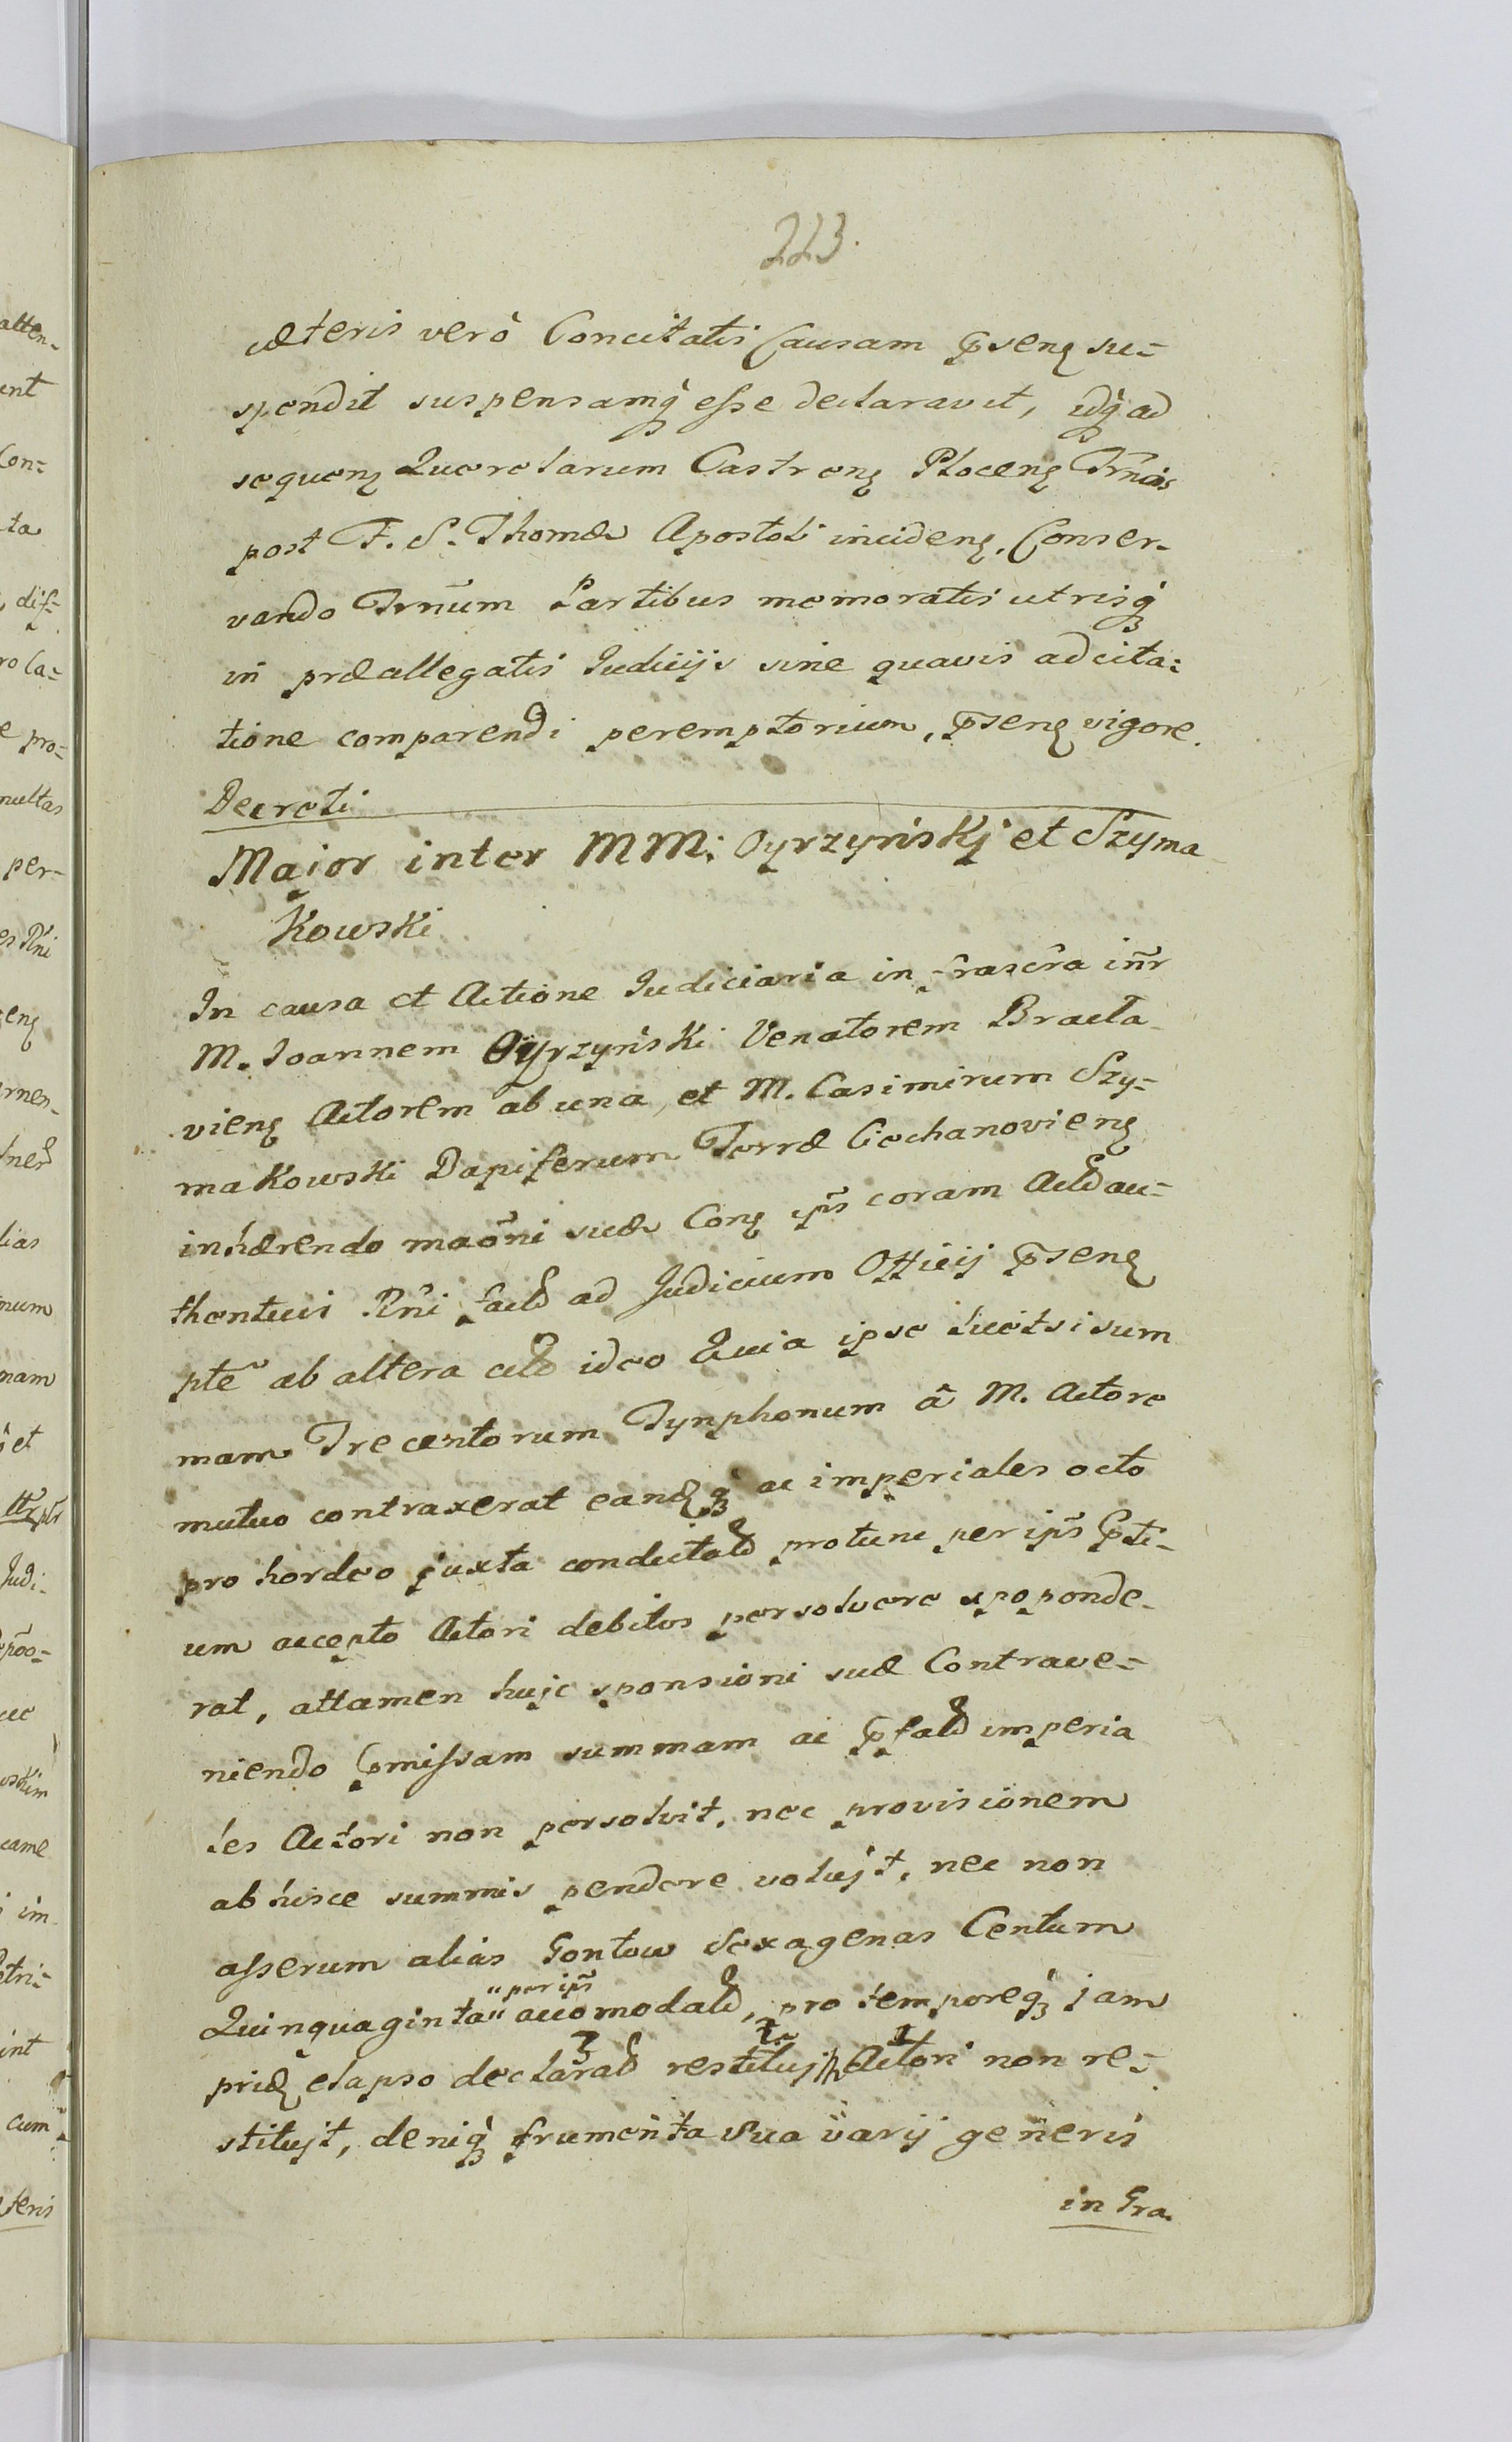 223.
cæteris verò Concitatis Causam p̄senꝫ su-
spendit suspensamq̀ꝫ eſse declaravit, idq̀ꝫ ad
sequenꝫ Querelarum Castrenꝫ Plocenꝫ Tr̃nos
post F. S. Thomæ Apostoli incidenꝫ. Conser-
vando Tr̃num Partibus memoratis utrisq̀ꝫ
in præallegatis Judicijs sine quavis adcita-
tione comparendi peremptorium, p̄senꝫ vigore
Decreti
Major inter MM: Oyrzyński et Szyma
Kowski
In causa et Actione Judiciaria infrascr̃a int̃r
M. Joannem Oyrzyński Venatorem Bracla
vienꝫ Actorem ab una, et M. Casimirum Szy-
maKowski Dapiferum Terræ Ciechanovienꝫ
inhærendo mao͂ni suæ Conꝫ ip̃s coram Actis au-
thentici R̃ni factæ ad Judicium Officij p̄senꝫ
pt̃e ab altera citt ideo Quia ipse licet sum
mam Trecentorum Tynphonum â M. Actore
mutuo contraxerat eandꝫq̀ꝫ ac imperiales octo
pro hordeo juxta condictat protunc per ip̃s p̄ti-
um accepto Actori debitos persolvere spoponde-
rat, attamen hujc sponsioni suæ Contrave-
niendo p̄miſsam summam ac p̄fat imperia
les Actori non persolvit, nec provisionem
ab hisce summis pendere volujt, nec non
aſserum alias Gontow Sexagenas Centum
Quinquaginta " per ip̃s " accomodat, pro temporeq̀ꝫ jam
pridꝫ elapso declarat restituj Actori non re-
stitujt, deniq̀ꝫ frumenta sua varij generis
in Gra.